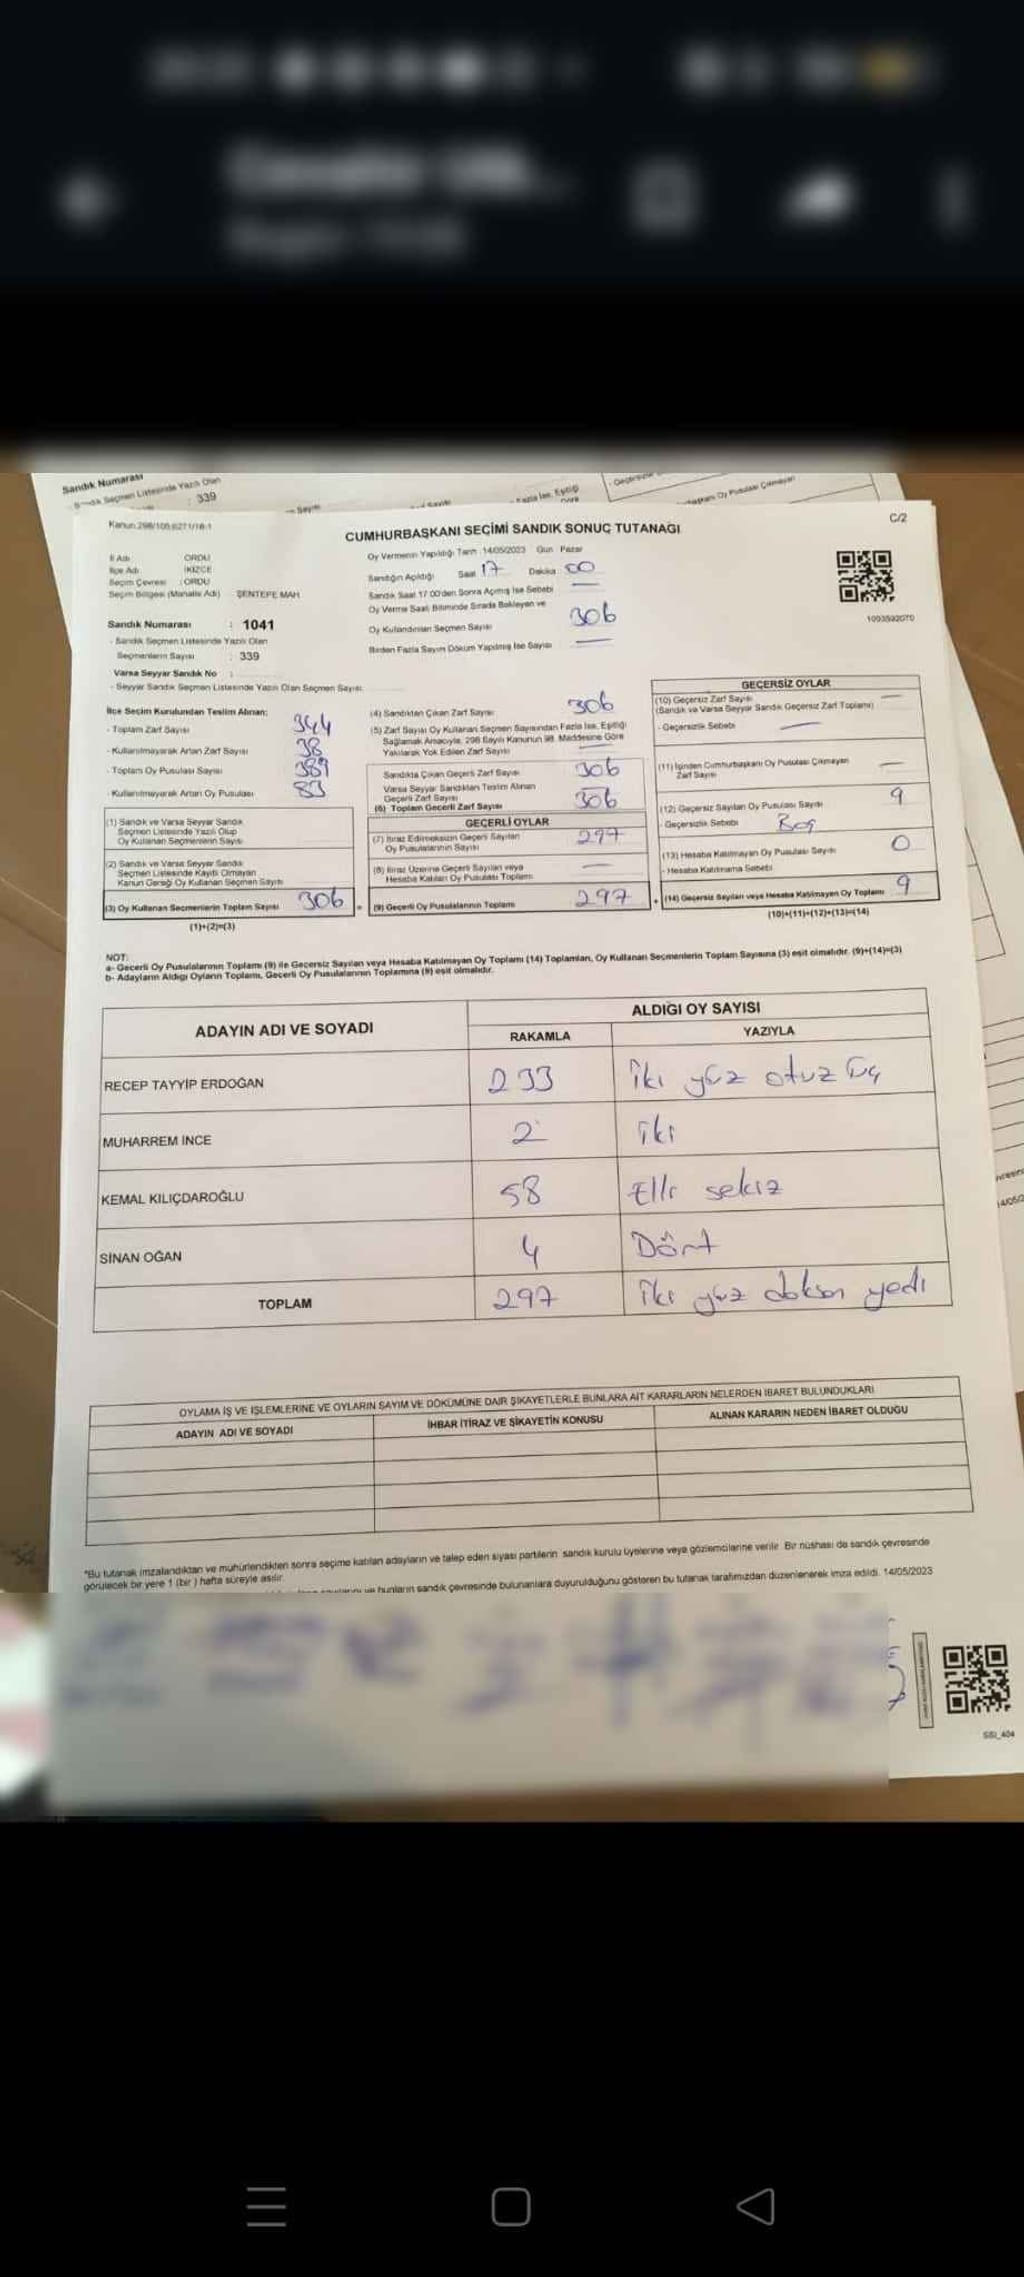 Sandık Numarası
Sandık Seçmen Listesinde Yazılı Olan
: 339
Kanun 298/105,6271/18-1
C/2
CUMHURBAŞKANI SEÇİMİ SANDIK SONUÇ TUTANAĞI
İl Adı : ORDU
İlçe Adı : İKİZCE
Seçim Çevresi : ORDU
Seçim Bölgesi (Mahalle Adı) ŞENTEPE MAH.
Oy Vermenin Yapıldığı Tarih : 14/05/2023 Gün Pazar
Sandığın Açıldığı Saat 17 Dakika 00
Sandık Saat 17:00'den Sonra Açılmış İse Sebebi —
Oy Verme Saati Bitiminde Sırada Bekleyen ve
Oy Kullandırılan Seçmen Sayısı 306
Birden Fazla Sayım Döküm Yapılmış İse Sayısı —
1093592070
Sandık Numarası : 1041
- Sandık Seçmen Listesinde Yazılı Olan
Seçmenlerin Sayısı : 339
Varsa Seyyar Sandık No :
- Seyyar Sandık Seçmen Listesinde Yazılı Olan Seçmen Sayısı
İlçe Seçim Kurulundan Teslim Alınan:
- Toplam Zarf Sayısı 344
- Kullanılmayarak Artan Zarf Sayısı 38
- Toplam Oy Pusulası Sayısı 389
- Kullanılmayarak Artan Oy Pusulası 83
(1) Sandık ve Varsa Seyyar Sandık
Seçmen Listesinde Yazılı Olup
Oy Kullanan Seçmenlerin Sayısı
(2) Sandık ve Varsa Seyyar Sandık
Seçmen Listesinde Kayıtlı Olmayan
Kanun Gereği Oy Kullanan Seçmen Sayısı
(3) Oy Kullanan Seçmenlerin Toplam Sayısı 306
(1)+(2)=(3)
(4) Sandıktan Çıkan Zarf Sayısı 306
(5) Zarf Sayısı Oy Kullanan Seçmen Sayısından Fazla İse, Eşitliği
Sağlamak Amacıyla, 298 Sayılı Kanunun 98. Maddesine Göre
Yakılarak Yok Edilen Zarf Sayısı —
Sandıkta Çıkan Geçerli Zarf Sayısı 306
Varsa Seyyar Sandıktan Teslim Alınan
Geçerli Zarf Sayısı —
(6) Toplam Geçerli Zarf Sayısı 306
GEÇERLİ OYLAR
(7) İtiraz Edilmeksizin Geçerli Sayılan
Oy Pusulalarının Sayısı 297
(8) İtiraz Üzerine Geçerli Sayılan veya
Hesaba Katılan Oy Pusulası Toplamı —
= (9) Geçerli Oy Pusulalarının Toplamı 297
GEÇERSİZ OYLAR
(10) Geçersiz Zarf Sayısı
(Sandık ve Varsa Seyyar Sandık Geçersiz Zarf Toplamı) —
- Geçersizlik Sebebi —
(11) İçinden Cumhurbaşkanı Oy Pusulası Çıkmayan
Zarf Sayısı —
(12) Geçersiz Sayılan Oy Pusulası Sayısı 9
- Geçersizlik Sebebi Boş
(13) Hesaba Katılmayan Oy Pusulası Sayısı 0
- Hesaba Katılmama Sebebi
+ (14) Geçersiz Sayılan veya Hesaba Katılmayan Oy Toplamı 9
(10)+(11)+(12)+(13)=(14)
NOT:
a- Geçerli Oy Pusulalarının Toplamı (9) ile Geçersiz Sayılan veya Hesaba Katılmayan Oy Toplamı (14) Toplamları, Oy Kullanan Seçmenlerin Toplam Sayısına (3) eşit olmalıdır. (9)+(14)=(3)
b- Adayların Aldığı Oyların Toplamı, Geçerli Oy Pusulalarının Toplamına (9) eşit olmalıdır.
ADAYIN ADI VE SOYADI
ALDIĞI OY SAYISI
RAKAMLA YAZIYLA
RECEP TAYYİP ERDOĞAN 233 İki yüz otuz üç
MUHARREM İNCE 2 iki
KEMAL KILIÇDAROĞLU 58 Elli sekiz
SİNAN OĞAN 4 Dört
TOPLAM 297 iki yüz doksan yedi
OYLAMA İŞ VE İŞLEMLERİNE VE OYLARIN SAYIM VE DÖKÜMÜNE DAİR ŞİKAYETLERLE BUNLARA AİT KARARLARIN NELERDEN İBARET BULUNDUKLARI
ADAYIN ADI VE SOYADI İHBAR İTİRAZ VE ŞİKAYETİN KONUSU ALINAN KARARIN NEDEN İBARET OLDUĞU
*Bu tutanak imzalandıktan ve mühürlendikten sonra seçime katılan adayların ve talep eden siyasi partilerin sandık kurulu üyelerine veya gözlemcilerine verilir. Bir nüshası da sandık çevresinde
görülecek bir yere 1 (bir) hafta süreyle asılır.
ve bunların sandık çevresinde bulunanlara duyurulduğunu gösteren bu tutanak tarafımızdan düzenlenerek imza edildi. 14/05/2023
SSI_404